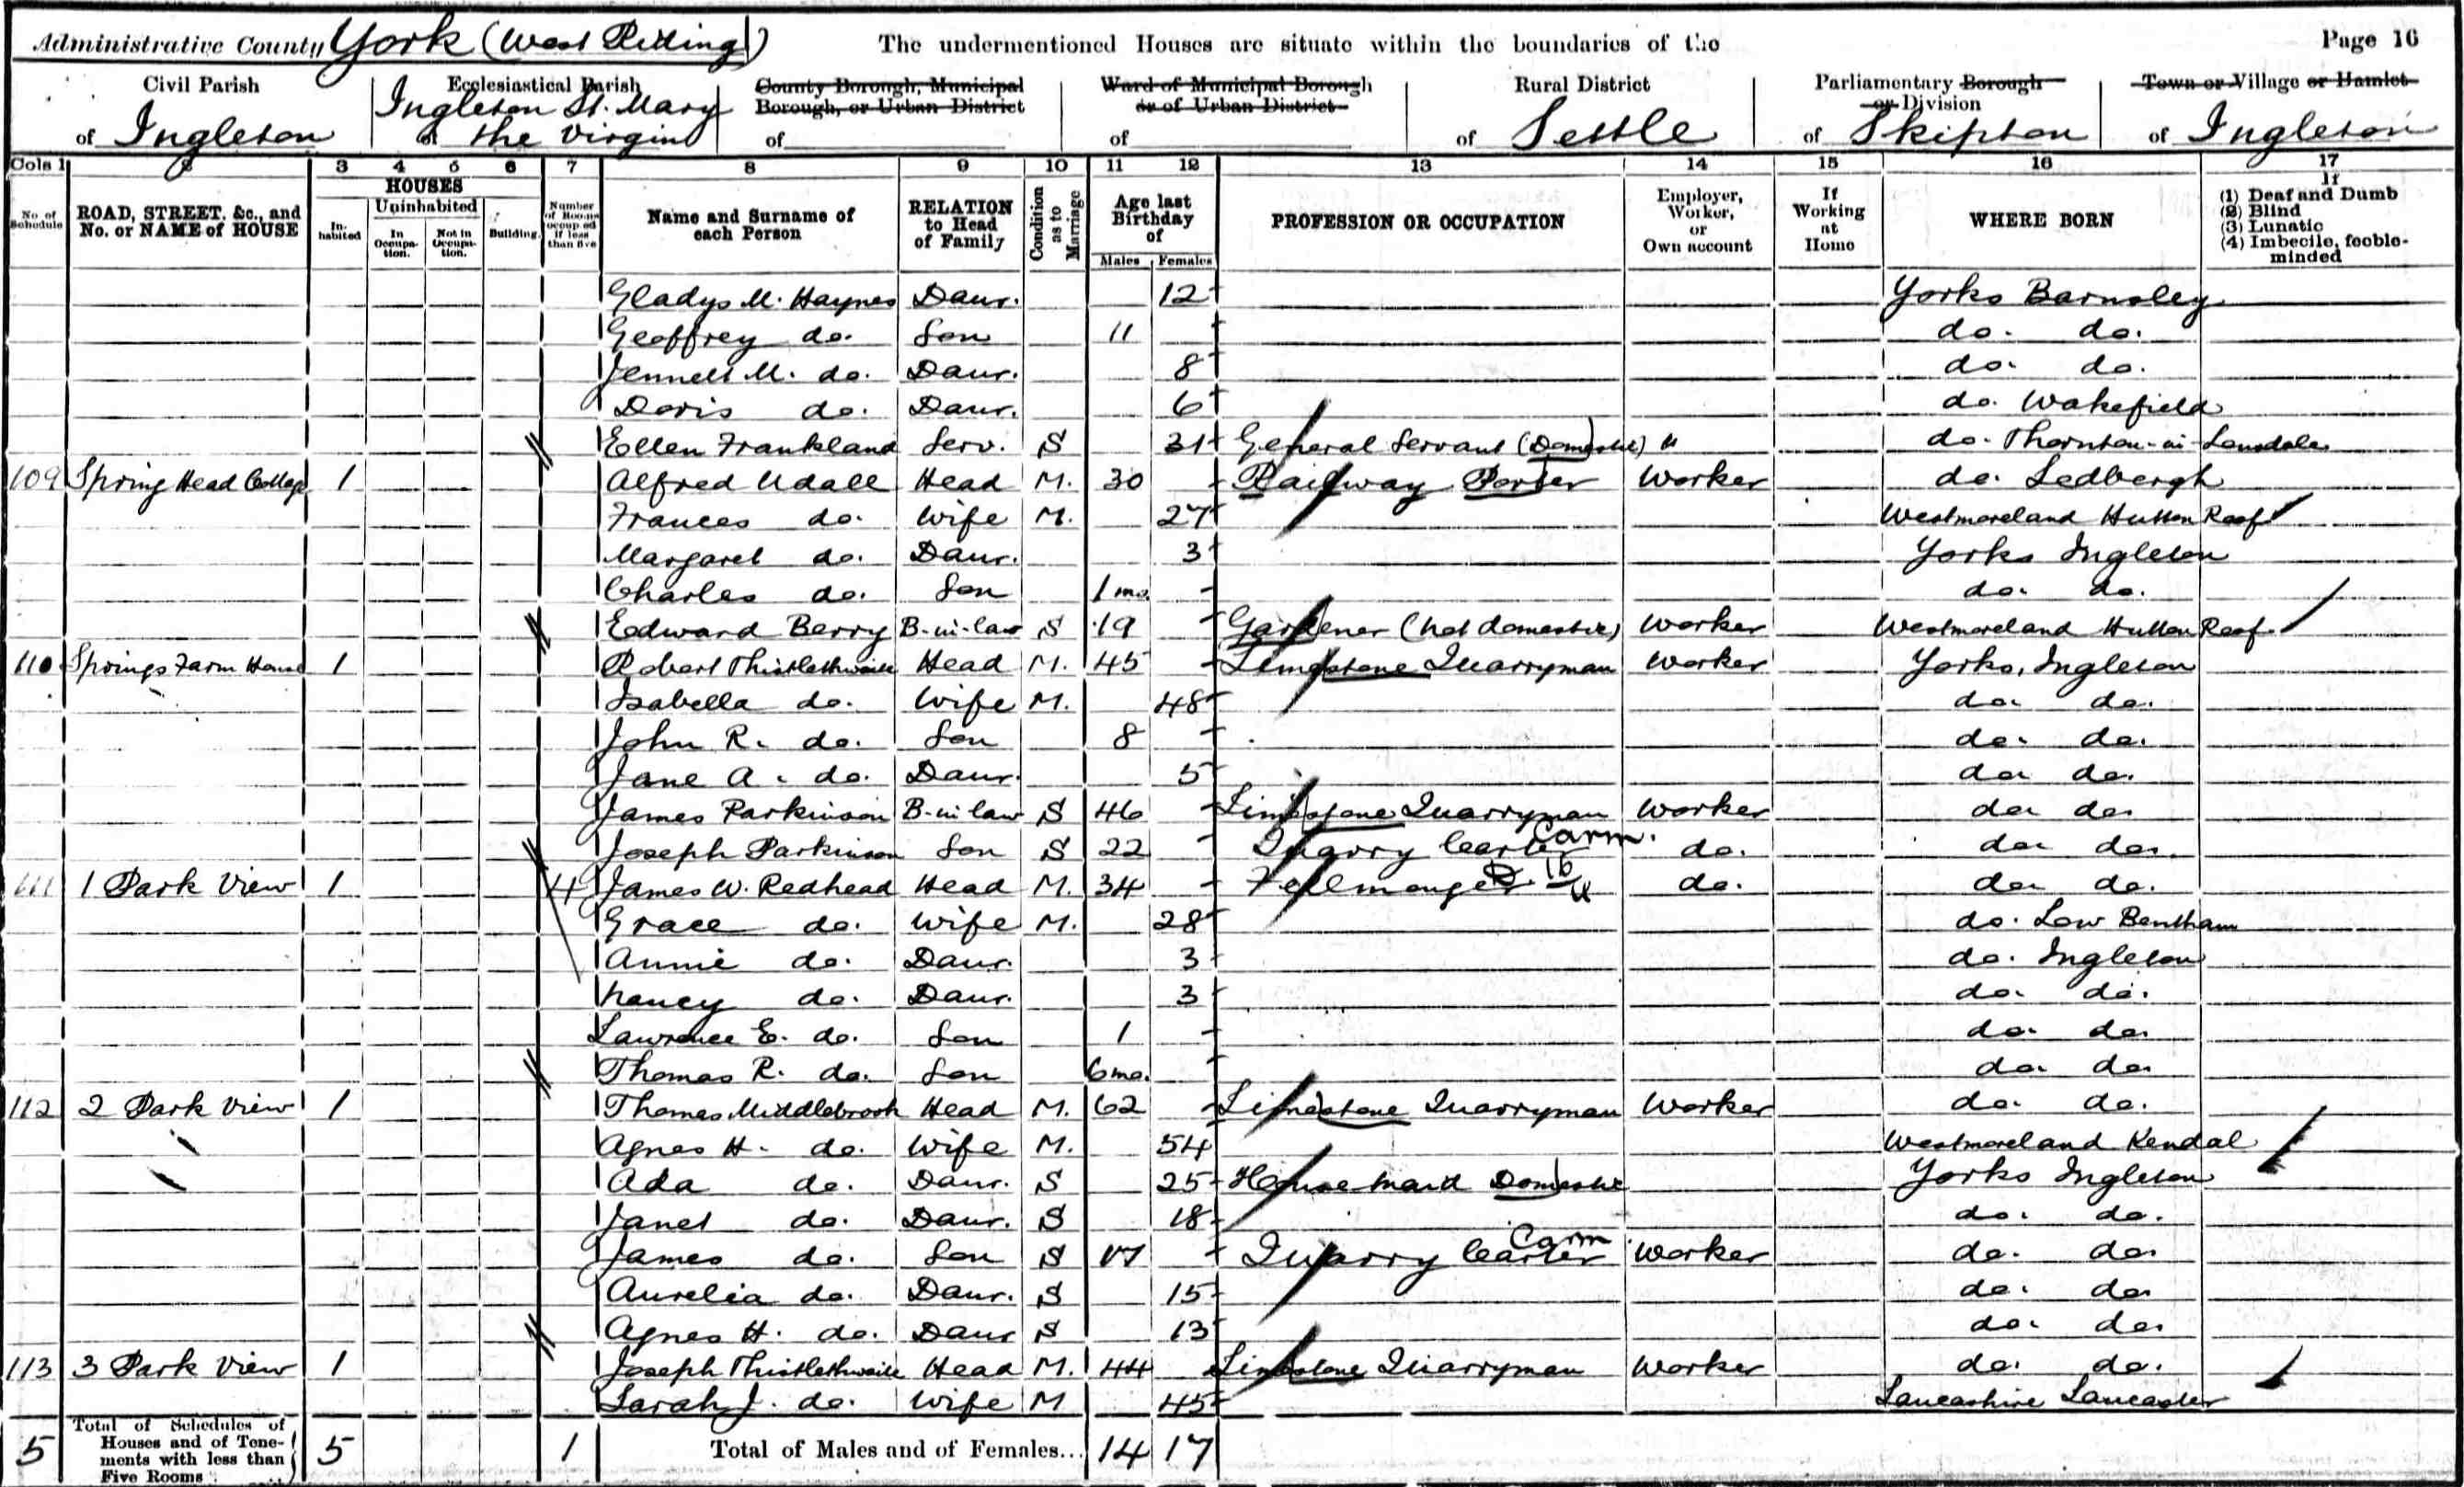 Administrative County York (West Riding) The undermentioned Houses are situate within the boundaries of the Page 16
Civil Parish of Ingleton
Ecclesiastical Parish of Ingleton St. Mary the Virgin
County Borough, Municipal Borough, or Urban District of
Ward of Municipal Borough or of Urban District of
Rural District of Settle
Parliamentary Borough or Division of Skipton
Town or Village or Hamlet of Ingleton
Cols 1 2 3 4 5 6 7 8 9 10 11 12 13 14 15 16 17
No. of Schedule
ROAD, STREET, &c., and No. or NAME of HOUSE
HOUSES
Inhabited
Uninhabited
In Occupation.
Not in Occupation.
Building.
Number of Rooms occupied if less than five
Name and Surname of each Person
RELATION to Head of Family
Condition as to Marriage
Age last Birthday of
Males Females
PROFESSION OR OCCUPATION
Employer, Worker, or Own account
If Working at Home
WHERE BORN
If (1) Deaf and Dumb (2) Blind (3) Lunatic (4) Imbecile, feeble-minded
Gladys M. Haynes Daur. 12 Yorks Barnsley
Geoffrey do. Son 11 do. do.
Jennett M. do. Daur. 8 do. do.
Doris do. Daur. 6 do. Wakefield
Ellen Frankland Serv. S 31 General Servant (Domestic) do. Thornton-in-Lonsdale
109 Spring Head Cottage 1 Alfred Udall Head M. 30 Railway Porter Worker do. Sedbergh
Frances do. Wife M. 27 Westmoreland Hutton Roof
Margaret do. Daur. 3 Yorks Ingleton
Charles do. Son 1 mo. do. do.
Edward Berry B-in-law S 19 Gardener (not domestic) Worker Westmoreland Hutton Roof
110 Springs Farm House 1 Robert Thistlethwaite Head M. 45 Limestone Quarryman Worker Yorks, Ingleton
Isabella do. Wife M. 48 do. do.
John R. do. Son 8 do. do.
Jane A. do. Daur. 5 do. do.
James Parkinson B-in-law S 46 Limestone Quarryman Worker do. do.
Joseph Parkinson Son S 22 Quarry Carter Carm. do. do. do.
111 1 Park View 1 4 James W. Redhead Head M. 34 Fellmonger do. do. do.
Grace do. Wife M. 28 do. Low Bentham
Annie do. Daur. 3 do. Ingleton
Nancy do. Daur. 3 do. do.
Lawrence E. do. Son 1 do. do.
Thomas R. do. Son 6 mo. do. do.
112 2 Park View 1 Thomas Middlebrook Head M. 62 Limestone Quarryman Worker do. do.
Agnes H. do. Wife M. 54 Westmoreland Kendal
Ada do. Daur. S 25 House maid Domestic Yorks Ingleton
Janet do. Daur. S 18 do. do.
James do. Son S 17 Quarry Carter Carm Worker do. do.
Aurelia do. Daur. S 15 do. do.
Agnes H. do. Daur S 13 do. do.
113 3 Park View 1 Joseph Thistlethwaite Head M. 44 Limestone Quarryman Worker do. do.
Sarah J. do. Wife M 45 Lancashire Lancaster
5 Total of Schedules of Houses and of Tenements with less than Five Rooms 5 1 Total of Males and of Females... 14 17